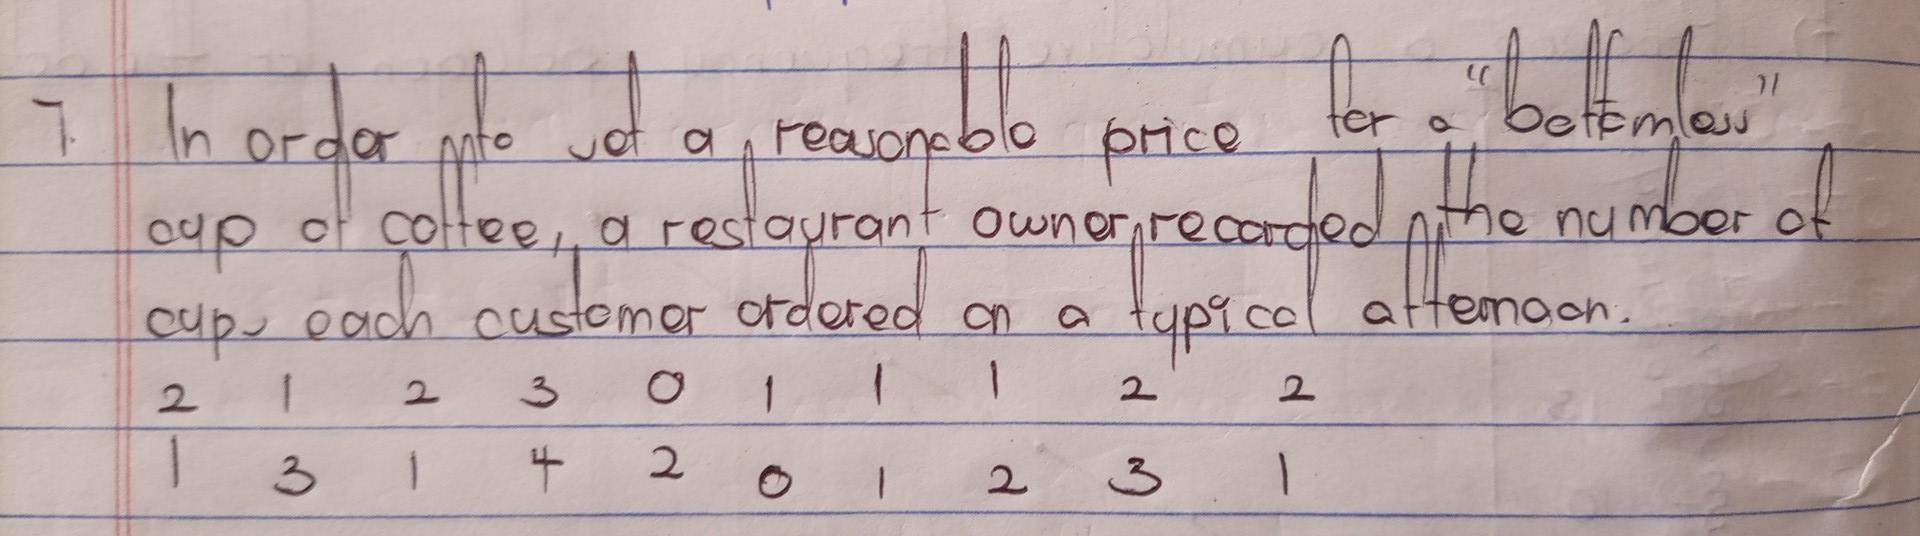 7. In order to set a reasonable price for a "bottomless"
cup of coffee, a restaurant owner recorded the number of
cups each customer ordered on a typical afternoon.
2 1 2 3 0 1 1 1 2 2
1 3 1 4 2 0 1 2 3 1